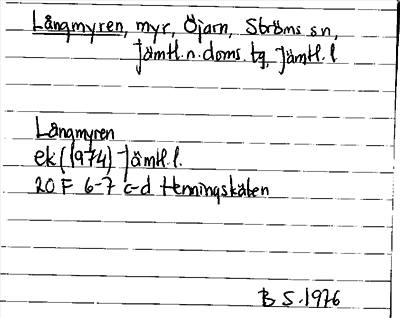 Långmyren, myr, Öjarn, Ströms sn,
Jämtl.n.doms.tg, Jämtl.l
Långmyren
ek (1974) Jämtl.l.
20 F 6-7 c-d Henningskälen
B S.1976